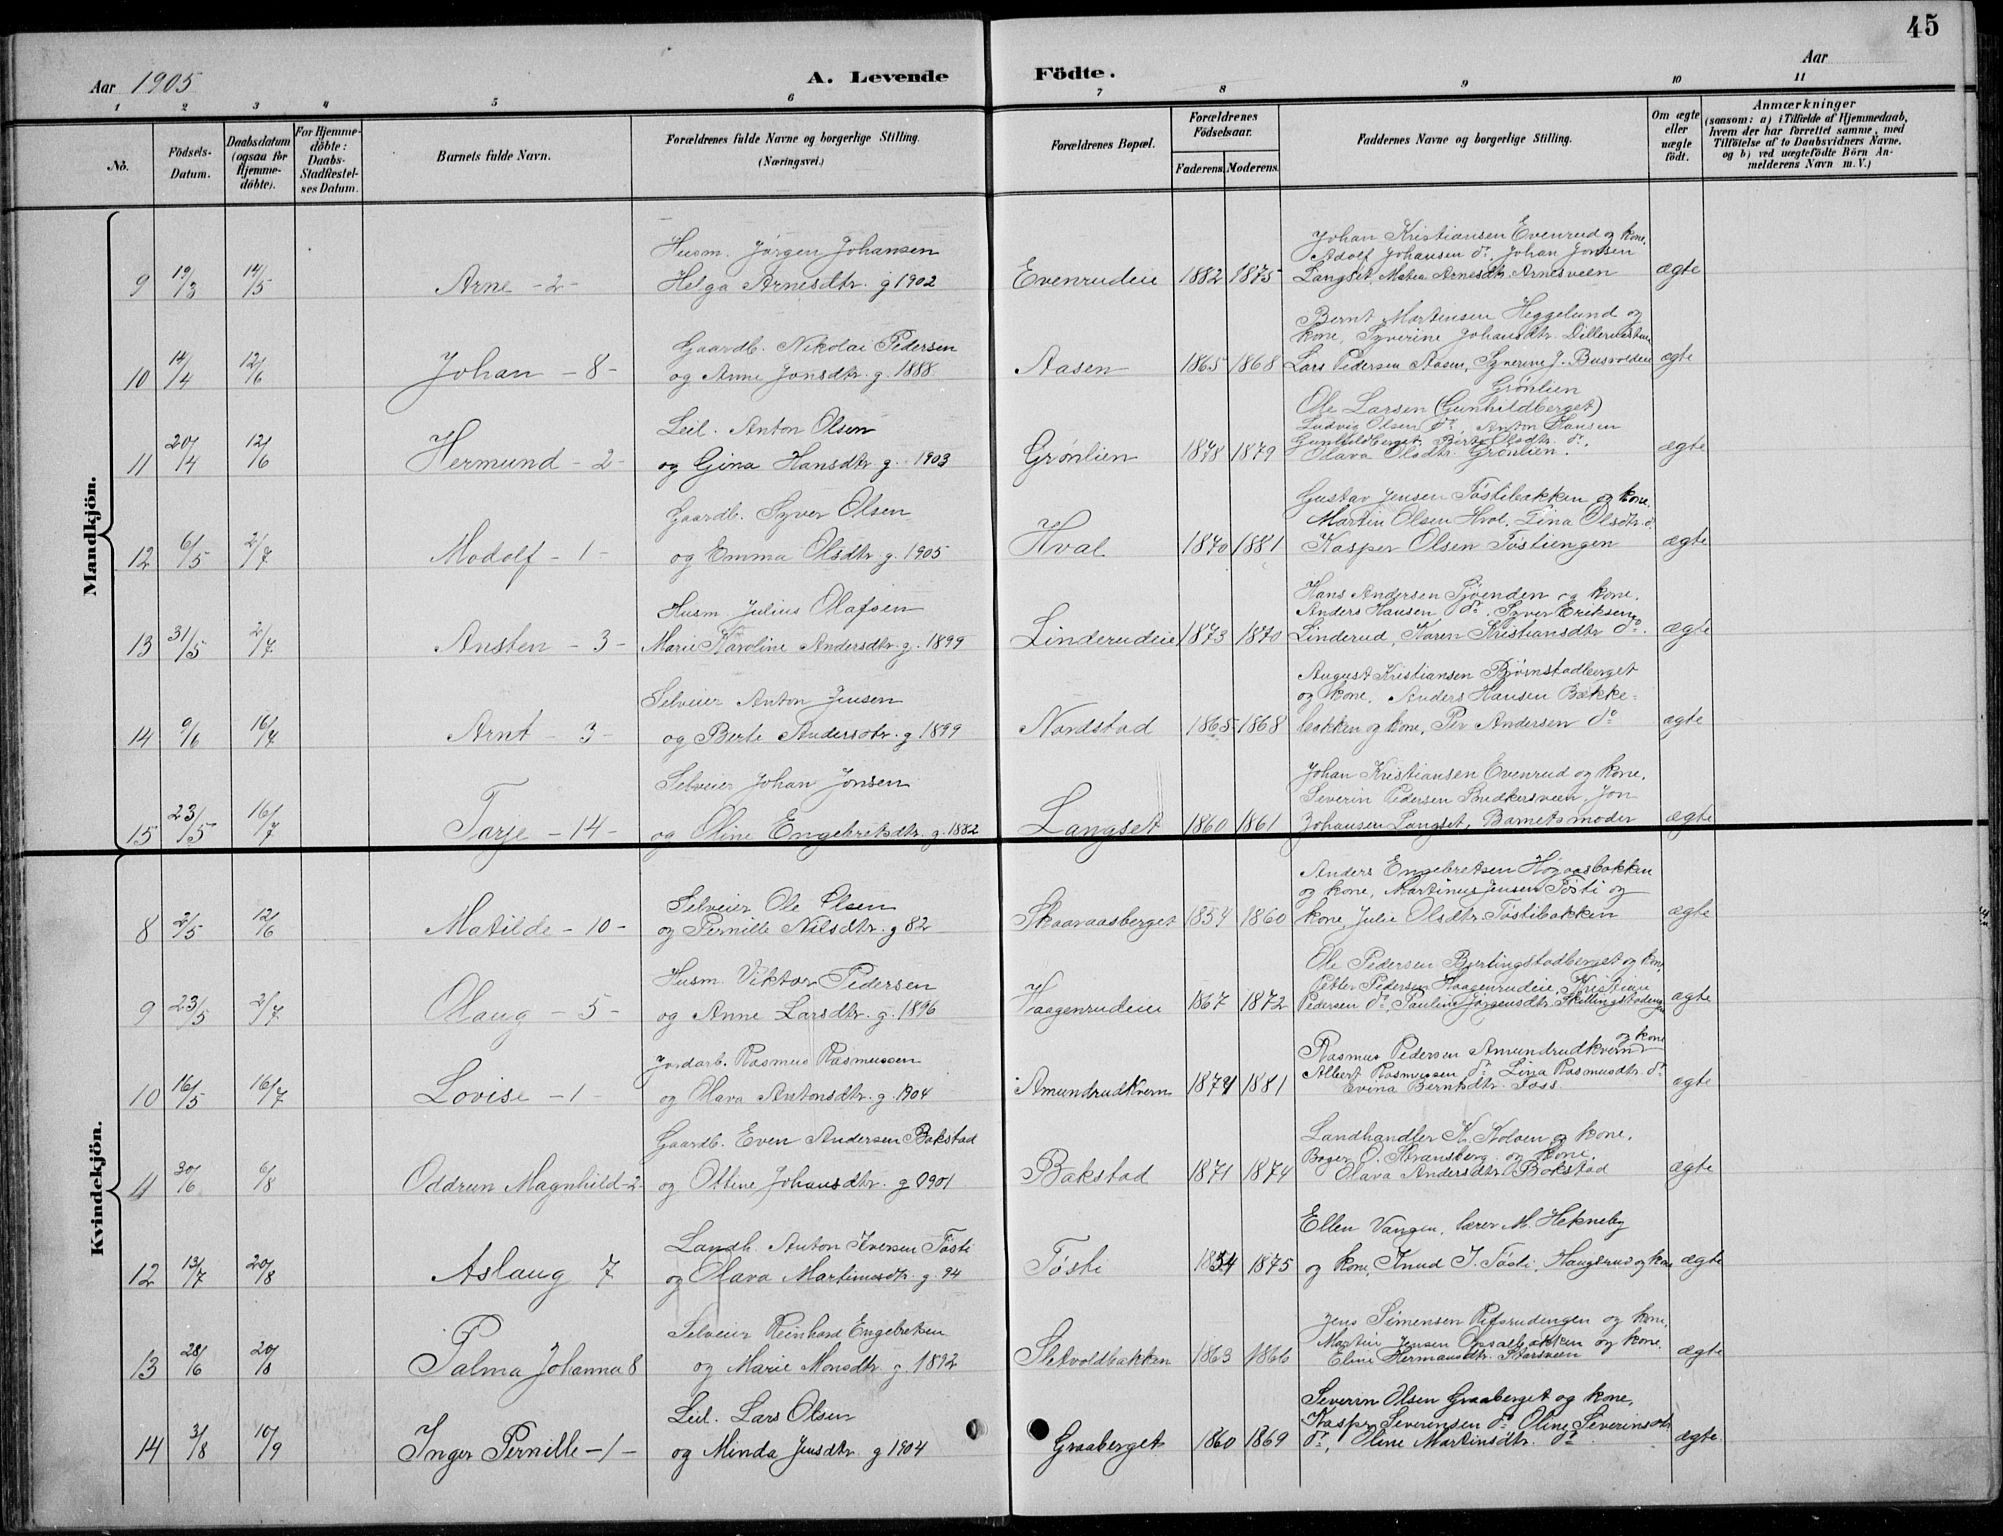 45
Aar 1905
A. Levende Födte.
Aar
1 2 3 4 5 6 7 8 9 10 11
No.
Födsels-Datum.
Daabsdatum (ogsaa for Hjemme-døbte).
For Hjemme-döbte: Daabs-Stadfæstel-ses Datum.
Barnets fulde Navn.
Forældrenes fulde Navne og borgerlige Stilling. (Næringsvei.)
Forældrenes Bopæl.
Forældrenes Födselsaar.
Faderens. Moderens.
Faddernes Navne og borgerlige Stilling.
Om ægte eller uægte födt.
Anmærkninger (saasom: a) i Tilfælde af Hjemmedaab, hvem der har forrettet samme, med Tilföielse af to Daabsvidners Navne, og b) ved uægtefödte Börn An-melderens Navn m. V.)
Mandkjön.
Husm. Jørgen Johansen
9 19/3 14/5 Arne - 2 - Helga Arnesdtr. g 1902 Evenrudeie 1882 1875
Johan Kristiansen Evenrud og kone,
Adolf Johansen do. Johan Jonsen
Langset, Matea Arnesdtr. Arnesveen ægte
Gaardb. Nikolai Pedersen
10 14/4 12/6 Johan - 8 - og Anne Jonsdtr. g. 1888 Aasen 1865 1868
Bernt Martinsen Heggelund og
kone, Syverine Johansdtr.
Lars Pedersen Aasen, Syverine J. ægte
Leil. Anton Olsen
11 20/4 12/6 Hermund - 2 - og Gina Hansdtr g. 1903 Grønlien 1878 1879
Grønlien
Ole Larsen (Gunhildberget)
Ludvig Olsen do, Anton Hansen
Gunhildberget, Berte Olsdtr. do.
Olava Olsdtr. Grønlien. ægte
Gaardb. Syver Olsen
12 6/5 2/7 Modolf - 1 - og Emma Olsdtr g. 1905 Hval 1870 1881
Gustav Jensen Tøstibakken og kone,
Martin Olsen Hval, Lina Olsdtr. do
Kasper Olsen Tøstiengen ægte
Husm. Julius Olafsen
13 31/5 2/7 Ansten - 3 - Marie Karoline Andersdtr. g. 1899 Linderudeie 1873 1870
Hans Andersen Sjøenden og kone,
Anders Hansen do, Syver Eriksen
Linderud, Karen Kristiansdtr do. ægte
Selveier Anton Jensen
14 9/6 16/7 Arnt - 3 - og Berte Andersdtr. g 1899 Nordstad 1865 1868
August Kristiansen Bjørnstadberget
og kone, Anders Hansen Bække-
bakken og kone, Per Andersen do ægte
Selveier Johan Jonsen
15 23/5 16/7 Tarje - 14 - og Oline Engebretsdtr. g. 1882 Langset 1860 1861
Johan Kristiansen Evenrud og kone,
Severin Pedersen Budkersveen, Jon
Johansen Langset, Barnets moder ægte
Kvindekjön.
Selveier Ole Olsen
8 2/5 12/6 Matilde - 10 - og Pernille Nilsdtr. g 82 Skaaraasberget 1854 1860
Anders Engebretsen Høgaasbakken
og kone, Martinus Jensen Tøsti og
kone, Julie Olsdtr. Tøstibakken ægte
Husm. Viktor Pedersen
9 23/5 2/7 Olaug - 5 - og Anne Larsdtr. g. 1896 Haagenrudeie 1867 1872
Ole Pedersen Bjertingstadberget og kone,
Petter Pedersen Haagenrudeie, Kristine
Pedersen do, Pauline Jørgensdtr. ægte
Jordarb. Rasmus Rasmussen
10 16/5 16/7 Lovise - 1 - og Olava Antonsdtr. g. 1904 Amundrudkvern 1874 1881
og kone
Rasmus Pedersen Amundrudkvern
Albert Rasmussen do Lina Rasmusdtr. do
Evina Berntsdtr. Foss ægte
Gaardb. Even Andersen Bakstad
11 30/6 6/8 Oddrun Magnhild - 2 - og Ottine Johansdtr. g 1901 Bakstad 1871 1874
Landhandler K. Kolven og kone,
Bager O. Stransberg og kone,
Olava Andersdtr. Bakstad ægte
Landh. Anton Iversen Tøsti
12 13/7 20/8 Aslaug 7 og Olava Martinusdtr. g. 94 Tøsti 1854 1875
Ellen Vangen, lærer M. Hekneby
og kone, Knud I. Tøsti, Haugsrud og kone ægte
Selveier Reinhard Engebretsen
13 28/6 20/8 Palma Johanna 8 og Marie Monsdtr. g. 1892 Sletvoldbakken 1863 1866
Jens Simensen og kone,
Martin Jensen Opsalbakken og kone,
Eline Hermansdtr. Storsveen ægte
Leil. Lars Olsen
14 3/8 10/9 Inger Pernille - 1 - og Minda Jensdtr. g 1904 Graaberget 1860 1869
Severin Olsen Graaberget og kone,
Kasper Severinsen do Oline Severinsdtr
do, Oline Martinsdtr. do ægte.